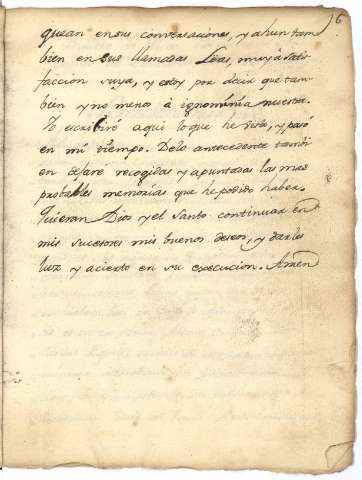 6
quean en sus conversaciones, y ahun tam
bien en sus llamadas Leas, muy à satis
faccion suya, y estoy por decir que tam
bien y no menos à ignominia nuestra.
Yo escribiré aqui loque he visto, y pasó
en mi tiempo. Delo antecedente tambi
en dejare recogidas y apuntadas las mas
probables memorias que he podido haber.
Quieran Dios y el Santo continuar en
mis sucesores mis buenos deseos, y darles
luz y acierto en su execucion. Amen